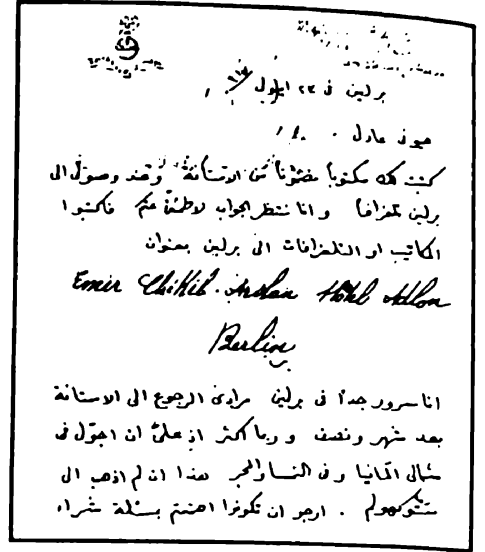 برلين في ٢٣ ايلول
عادل
كتبت لك مكتوباً من الاستانة وعند وصولي الى
برلين تلغرافاً وانا ننتظر الجواب لاطمئن عنكم فاكتبوا
المكاتيب او التلغرافات الى برلين بعنوان
Emir Chékib Arslan Hôtel Adlon
Berlin
برلين
انا مسرور جداً في برلين مرادي الرجوع الى الاستانة
بعد شهر ونصف وربما اكثر اذ عليّ ان اجوّل في
شمالي المانيا وفي النمسا والمجر هذا ان لم اذهب الى
ستوكهولم . ارجو ان تكونوا اهتممتم بمسئلة شراء